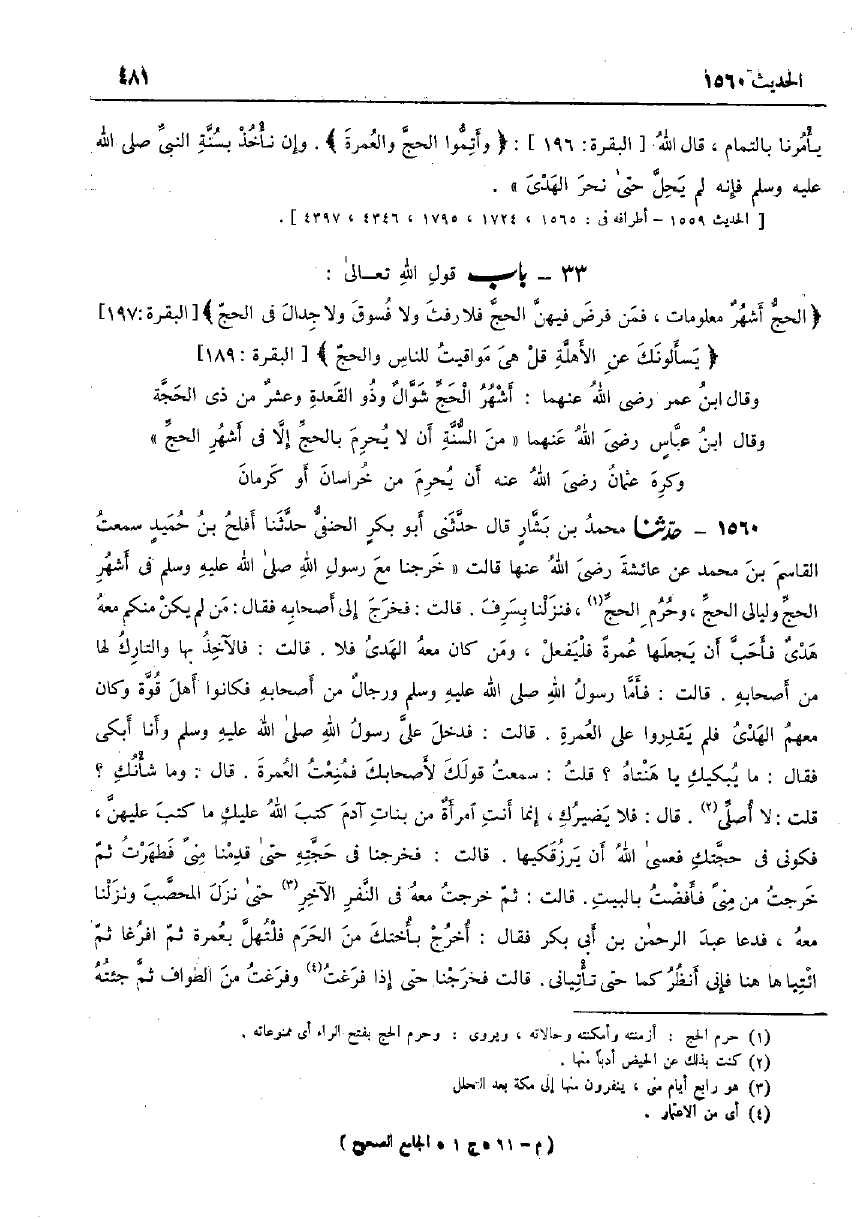 الحديث ١٥٦٠ ٤٨١
يأْمُرنا بالتمام ، قال اللهُ [ البقرة: ١٩٦ ] : ﴿ وأَتِمُّوا الحجَّ والعُمرةَ ﴾ . وإن نأْخُذْ بسُنَّةِ النبيِّ صلى الله
عليه وسلم فإنه لم يَحِلَّ حتىٰ نحرَ الهَدْىَ » .
[ الحديث ١٥٥٩ – أطرافه فى : ١٥٦٥ ، ١٧٢٤ ، ١٧٩٥ ، ٤٣٤٦ ، ٤٣٩٧ ] .
٣٣ – باب قولِ اللهِ تعالىٰ :
﴿ الحجُّ أَشهُرٌ معلومات ، فمَن فرضَ فيهنَّ الحجَّ فلا رفثَ ولا فُسوقَ ولا جِدالَ فى الحجّ ﴾ [ البقرة :١٩٧]
﴿ يَسأَلونَكَ عنِ الأَهلَّةِ قلْ هىَ مَواقيتُ للناسِ والحجّ ﴾ [ البقرة : ١٨٩]
وقال ابنُ عمر رضى اللهُ عنهما : أَشْهُرُ الْحَجِّ شَوَّالٌ وذُو القَعدةِ وعشرٌ من ذى الحَجَّة
وقال ابنُ عبَّاس رضىَ اللهُ عَنهما « منَ السُّنَّةِ أَن لا يُحرِمَ بالحجِّ إلَّا فى أَشهُرِ الحجِّ »
وكرِهَ عثمانُ رضىَ اللهُ عنه أَن يُحرِمَ من خُراسانَ أَو كَرمانَ
١٥٦٠ – حدّثنا محمدُ بن بَشَّارٍ قال حدَّثَنى أَبو بكرٍ الحنفىُّ حدَّثَنا أَفلحُ بنُ حُمَيدٍ سمعتُ
القاسمَ بنَ محمد عن عائشةَ رضىَ اللهُ عنها قالت « خَرجنا معَ رسولِ اللهِ صلىٰ الله عليهِ وسلم فى أَشهُرِ
الحجِّ وليالى الحجِّ ، وحُرُمِ الحجِّ(١) ، فنزَلْنا بِسَرِفَ . قالت : فخرَجَ إلى أَصحابِه فقال : مَن لم يكنْ منكم معهُ
هَدْىٌ فأَحَبَّ أَن يَجعلَها عُمرةً فلْيَفعلْ ، ومَن كان معهُ الهَدىُ فلا . قالت : فالآخِذُ بها والتاركُ لها
من أَصحابهِ . قالت : فأَمَّا رسولُ اللهِ صلى الله عليهِ وسلم ورجالٌ من أَصحابهِ فكانوا أَهلَ قُوَّة وكان
معهمُ الهَدْىُ فلم يَقدِروا على العُمرةِ . قالت : فدخلَ علىَّ رسولُ اللهِ صلىٰ الله عليهِ وسلم وأَنا أَبكى
فقال : ما يُبكيكِ يا هَنْتاهُ ؟ قلتُ : سمعتُ قولَكَ لأَصحابكَ فمُنِعْتُ العُمرةَ . قال : وما شأْنُكِ ؟
قلت : لا أُصلِّى(٢) . قال : فلا يَضيرُكِ ، إنما أَنتِ اَمرأَةٌ من بناتِ آدمَ كتبَ اللهُ عليكِ ما كتبَ عليهنَّ ،
فكونى فى حجَّتِكِ فعسىٰ اللهُ أَن يَرزُقَكيها . قالت : فخرجنا فى حَجَّتِهِ حتىٰ قدِمْنا مِنىً فَطهَرْتُ ثمّ
خَرجتُ من مِنىً فأَفَضْتُ بالبيتِ . قالت : ثمّ خرجتُ معهُ فى النَّفرِ الآخِرِ(٣) حتىٰ نزَلَ المحصَّبَ ونزَلْنا
معه ، فدعا عبدَ الرحمٰن بن أَبي بكر فقال : أُخرُجْ بأُختكَ منَ الحَرَم فلْتُهلَّ بعُمرة ثمّ افرُغا ثمّ
ائتِيا ها هنا فإنى أَنظُرُ كما حتى تأْتِيانى . قالت فخرَجْنا حتى إذا فرَغتُ(٤) وفرَغتُ منَ الطواف ثمَّ جئتُهُ
(١) حرم الحج : أزمنته وأمكنته وحالاته ، ويروى : وحرم الحج بفتح الراء أى ممنوعاته .
(٢) كنت بذلك عن الحيض أدباً منها .
(٣) هو رابع أيام منى ، ينفرون منها إلى مكة بعد التحلل
(٤) أى من الاعتمار .
( م – ٦١ • ج ١ • الجامع الصحيح )